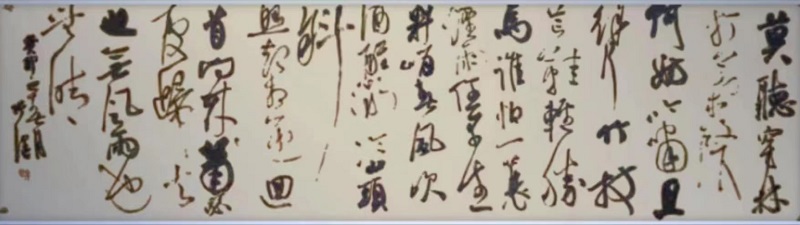 莫聽穿林
打葉聲
何妨吟嘯且
徐行竹杖
芒鞋輕勝
馬誰怕一蓑
煙雨任平生
料峭春風吹
酒醒微冷山頭
斜
照却相迎回
首向來蕭瑟
處歸去
也無風雨也
無晴
癸卯